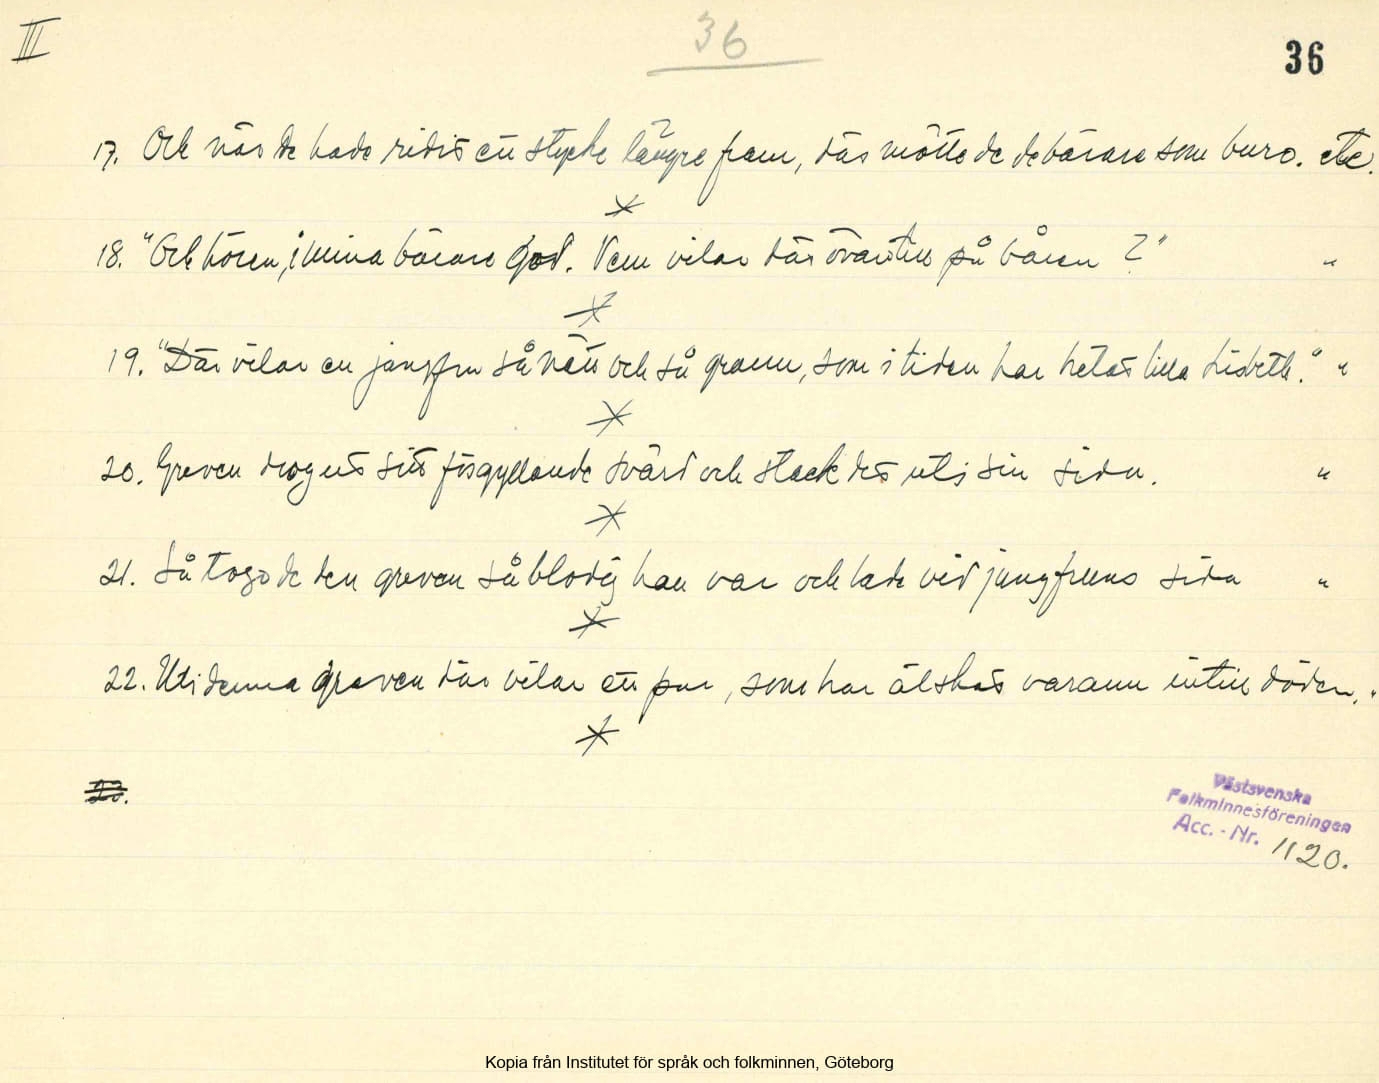 III
36
36
17. Och när de hade ridit ett stycke längre fram, där mötte de de bärare som buro. etc.
18. "Och hören, i mina bärare god. Vem vilar där ovantill på båren?" "
19. "Där vilar en jungfru så nätt och så grann, som i tiden har hetat lilla Lisbeth." "
20. Greven drog ut sitt förgyllande svärd och stack det uti sin sida. "
21. Så togo de den greven så blodig han var och lade vid jungfruns sida "
22. Uti denna graven där vilar ett par, som har älskat varann intill döden. "
23.
Västsvenska
Folkminnesföreningen
Acc. - Nr. 1120.
Kopia från Institutet för språk och folkminnen, Göteborg